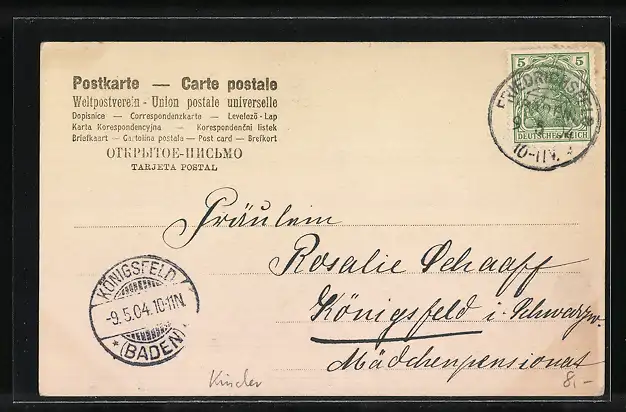 Postkarte — Carte postale
Weltpostverein - Union postale universelle
Dopisnice — Correspondenzkarte — Levelező-Lap
Karta Korespondencyjna — Korespondenční listek
Briefkaart — Cartolina postale — Post card — Brefkort
ОТКРЫТОЕ-ПИСЬМО
TARJETA POSTAL
5 5
DEUTSCHES REICH
FRIEDRICHSFELD
10-11V.
Fräulein
Rosalie Schaaff
Königsfeld i. Schwarzw.
Mädchenpensionat
KÖNIGSFELD
-9.5.04.10-11N.
* (BADEN) *
Kinder
8,-